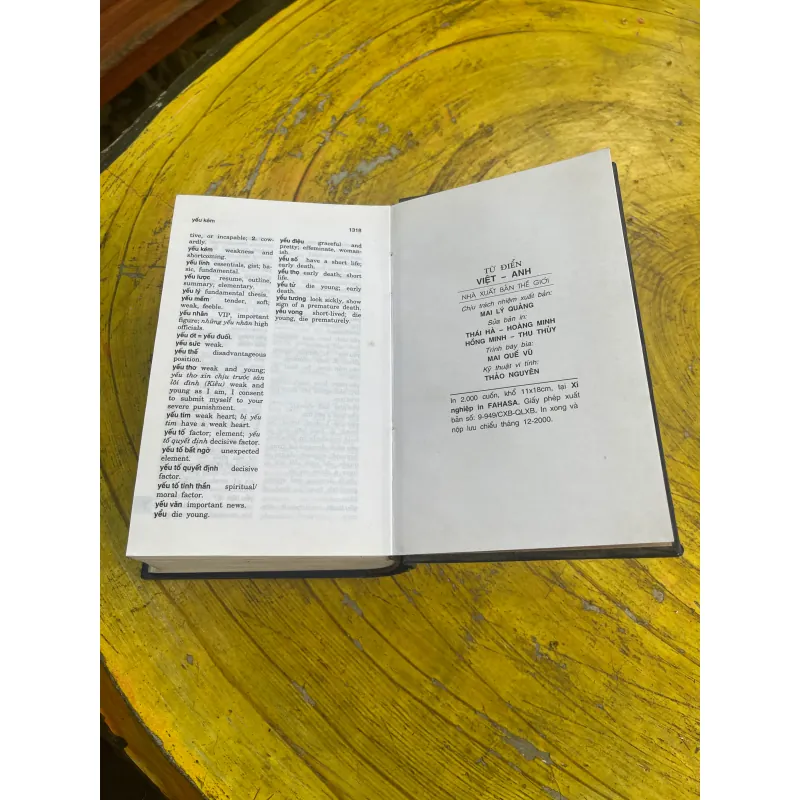 yếu kém
1318
tive, or incapable; 2. cow-
ardly.
yếu kém weakness and
shortcoming.
yếu lĩnh essentials, gist; ba-
sic, fundamental.
yếu lược resume, outline,
summary; elementary.
yếu lý fundamental thesis,
yếu mềm tender, soft;
weak, feeble.
yếu nhân VIP, important
figure; những yếu nhân high
officials.
yếu ớt = yếu đuối.
yếu sức weak.
yếu thế disadvantageous
position.
yếu thơ weak and young;
yếu thơ xin chịu trước sân
lôi đình (Kiều) weak and
young as I am, I consent
to submit myself to your
severe punishment.
yếu tim weak heart; bị yếu
tim have a weak heart.
yếu tố factor; element; yếu
tố quyết định decisive factor.
yếu tố bất ngờ unexpected
element.
yếu tố quyết định decisive
factor.
yếu tố tinh thần spiritual/
moral factor.
yếu văn important news.
yểu die young.
yểu điệu graceful and
pretty; effeminate, woman-
ish.
yểu số have a short life;
early death.
yểu thọ early death; short
life.
yểu tử die young; early
death.
yểu tướng look sickly, show
sign of a premature death.
yểu vong short-lived; die
young, die prematurely.
TỪ ĐIỂN
VIỆT – ANH
NHÀ XUẤT BẢN THẾ GIỚI
Chịu trách nhiệm xuất bản:
MAI LÝ QUẢNG
Sửa bản in:
THÁI HÀ – HOÀNG MINH
HỒNG MINH – THU THỦY
Trình bày bìa:
MAI QUẾ VŨ
Kỹ thuật vi tính:
THẢO NGUYÊN
In 2.000 cuốn, khổ 11x18cm, tại Xí
nghiệp in FAHASA. Giấy phép xuất
bản số: 9-949/CXB-QLXB. In xong và
nộp lưu chiểu tháng 12-2000.